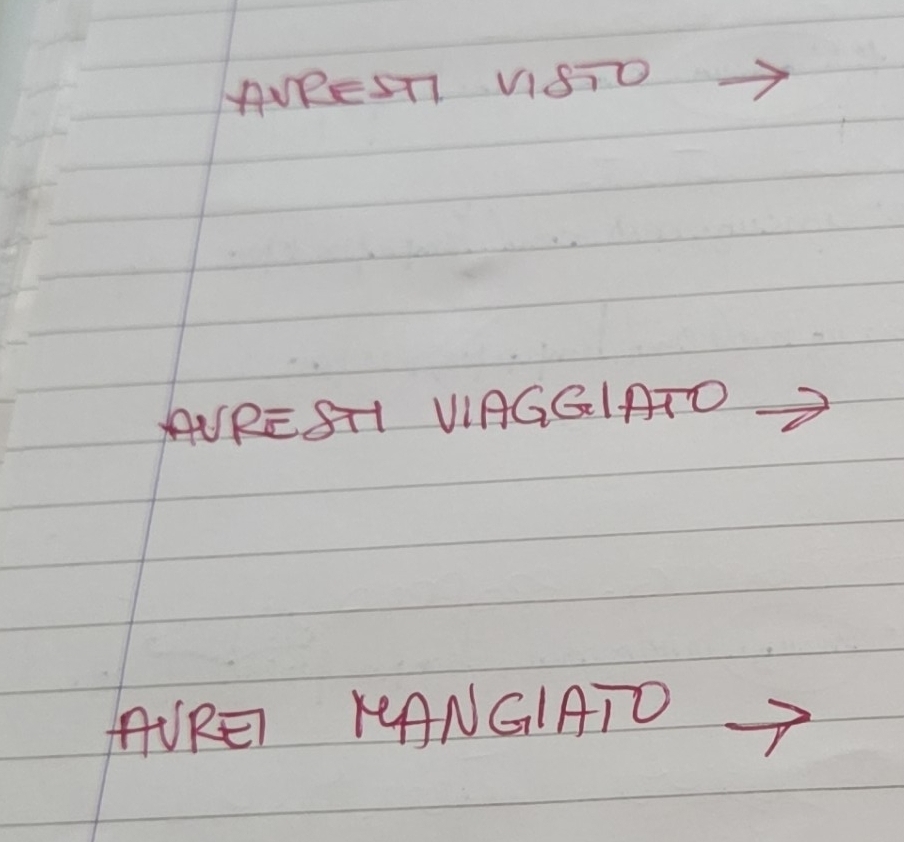 AVRESTI VISTO →
AVRESTI VIAGGIATO →
AVREI MANGIATO →